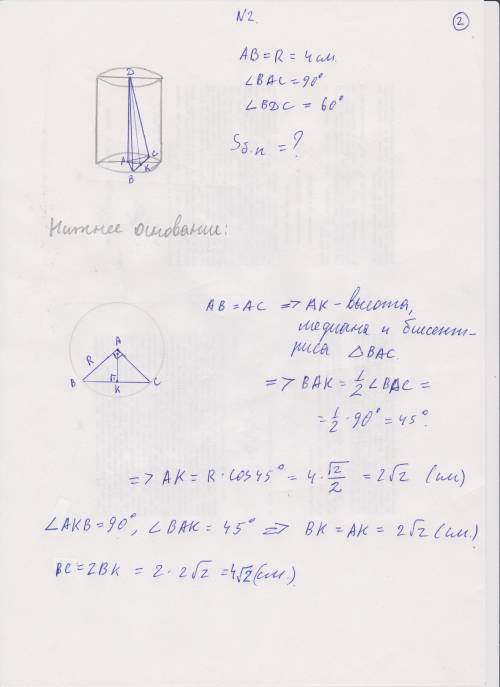 N2.
2
AB = R = 4 см.
∠BAC = 90°
∠BDC = 60°
Sб.п = ?
D
A
C
K
B
Нижнее основании:
AB = AC => AK - высота,
медиана и биссект-
риса △BAC.
A
R
B
K
C
=> BAK = 1/2 ∠BAC =
= 1/2 · 90° = 45°.
=> AK = R · cos45° = 4 · √2/2 = 2√2 (см)
∠AKB = 90°, ∠BAK = 45° => BK = AK = 2√2 (см.)
BC = 2BK = 2 · 2√2 = 4√2 (см.)